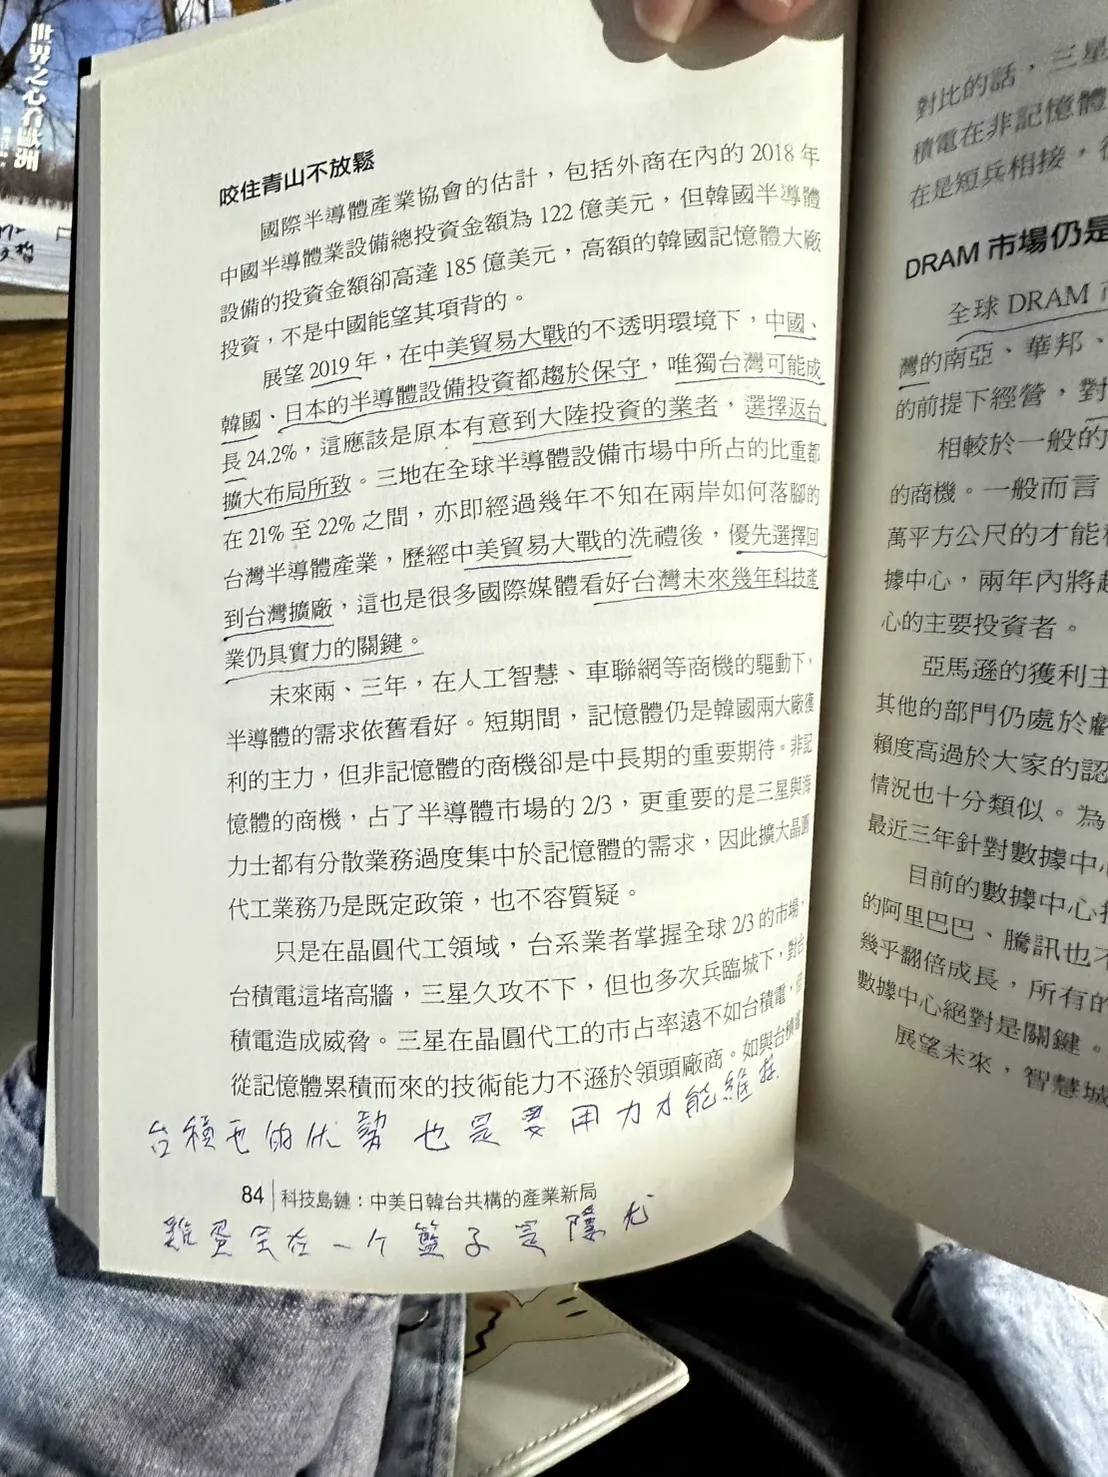 世界之心看歐洲
咬住青山不放鬆
國際半導體產業協會的估計，包括外商在內的 2018 年
中國半導體業設備總投資金額為 122 億美元，但韓國半導體
設備的投資金額卻高達 185 億美元，高額的韓國記憶體大廠
投資，不是中國能望其項背的。
展望 2019 年，在中美貿易大戰的不透明環境下，中國、
韓國、日本的半導體設備投資都趨於保守，唯獨台灣可能成
長 24.2%，這應該是原本有意到大陸投資的業者，選擇返台
擴大布局所致。三地在全球半導體設備市場中所占的比重都
在 21% 至 22% 之間，亦即經過幾年不知在兩岸如何落腳的
台灣半導體產業，歷經中美貿易大戰的洗禮後，優先選擇回
到台灣擴廠，這也是很多國際媒體看好台灣未來幾年科技產
業仍具實力的關鍵。
未來兩、三年，在人工智慧、車聯網等商機的驅動下，
半導體的需求依舊看好。短期間，記憶體仍是韓國兩大廠獲
利的主力，但非記憶體的商機卻是中長期的重要期待。非記
憶體的商機，占了半導體市場的 2/3，更重要的是三星與海
力士都有分散業務過度集中於記憶體的需求，因此擴大晶圓
代工業務乃是既定政策，也不容質疑。
只是在晶圓代工領域，台系業者掌握全球 2/3 的市場，
台積電這堵高牆，三星久攻不下，但也多次兵臨城下，對台
積電造成威脅。三星在晶圓代工的市占率遠不如台積電，但
從記憶體累積而來的技術能力不遜於領頭廠商。如與台積電
台積电的优勢也是要用力才能維持
84 | 科技島鏈：中美日韓台共構的產業新局
雞蛋全在一个籃子是隱忧
對比的話，三星
積電在非記憶體
在是短兵相接，
DRAM 市場仍是
全球 DRAM
灣的南亞、華邦、
的前提下經營，對
相較於一般的
的商機。一般而言
萬平方公尺的才能
據中心，兩年內將
心的主要投資者。
亞馬遜的獲利主
其他的部門仍處於虧
賴度高過於大家的認
情況也十分類似。為
最近三年針對數據中
目前的數據中心
的阿里巴巴、騰訊也不
幾乎翻倍成長，所有的
數據中心絕對是關鍵。
展望未來，智慧城